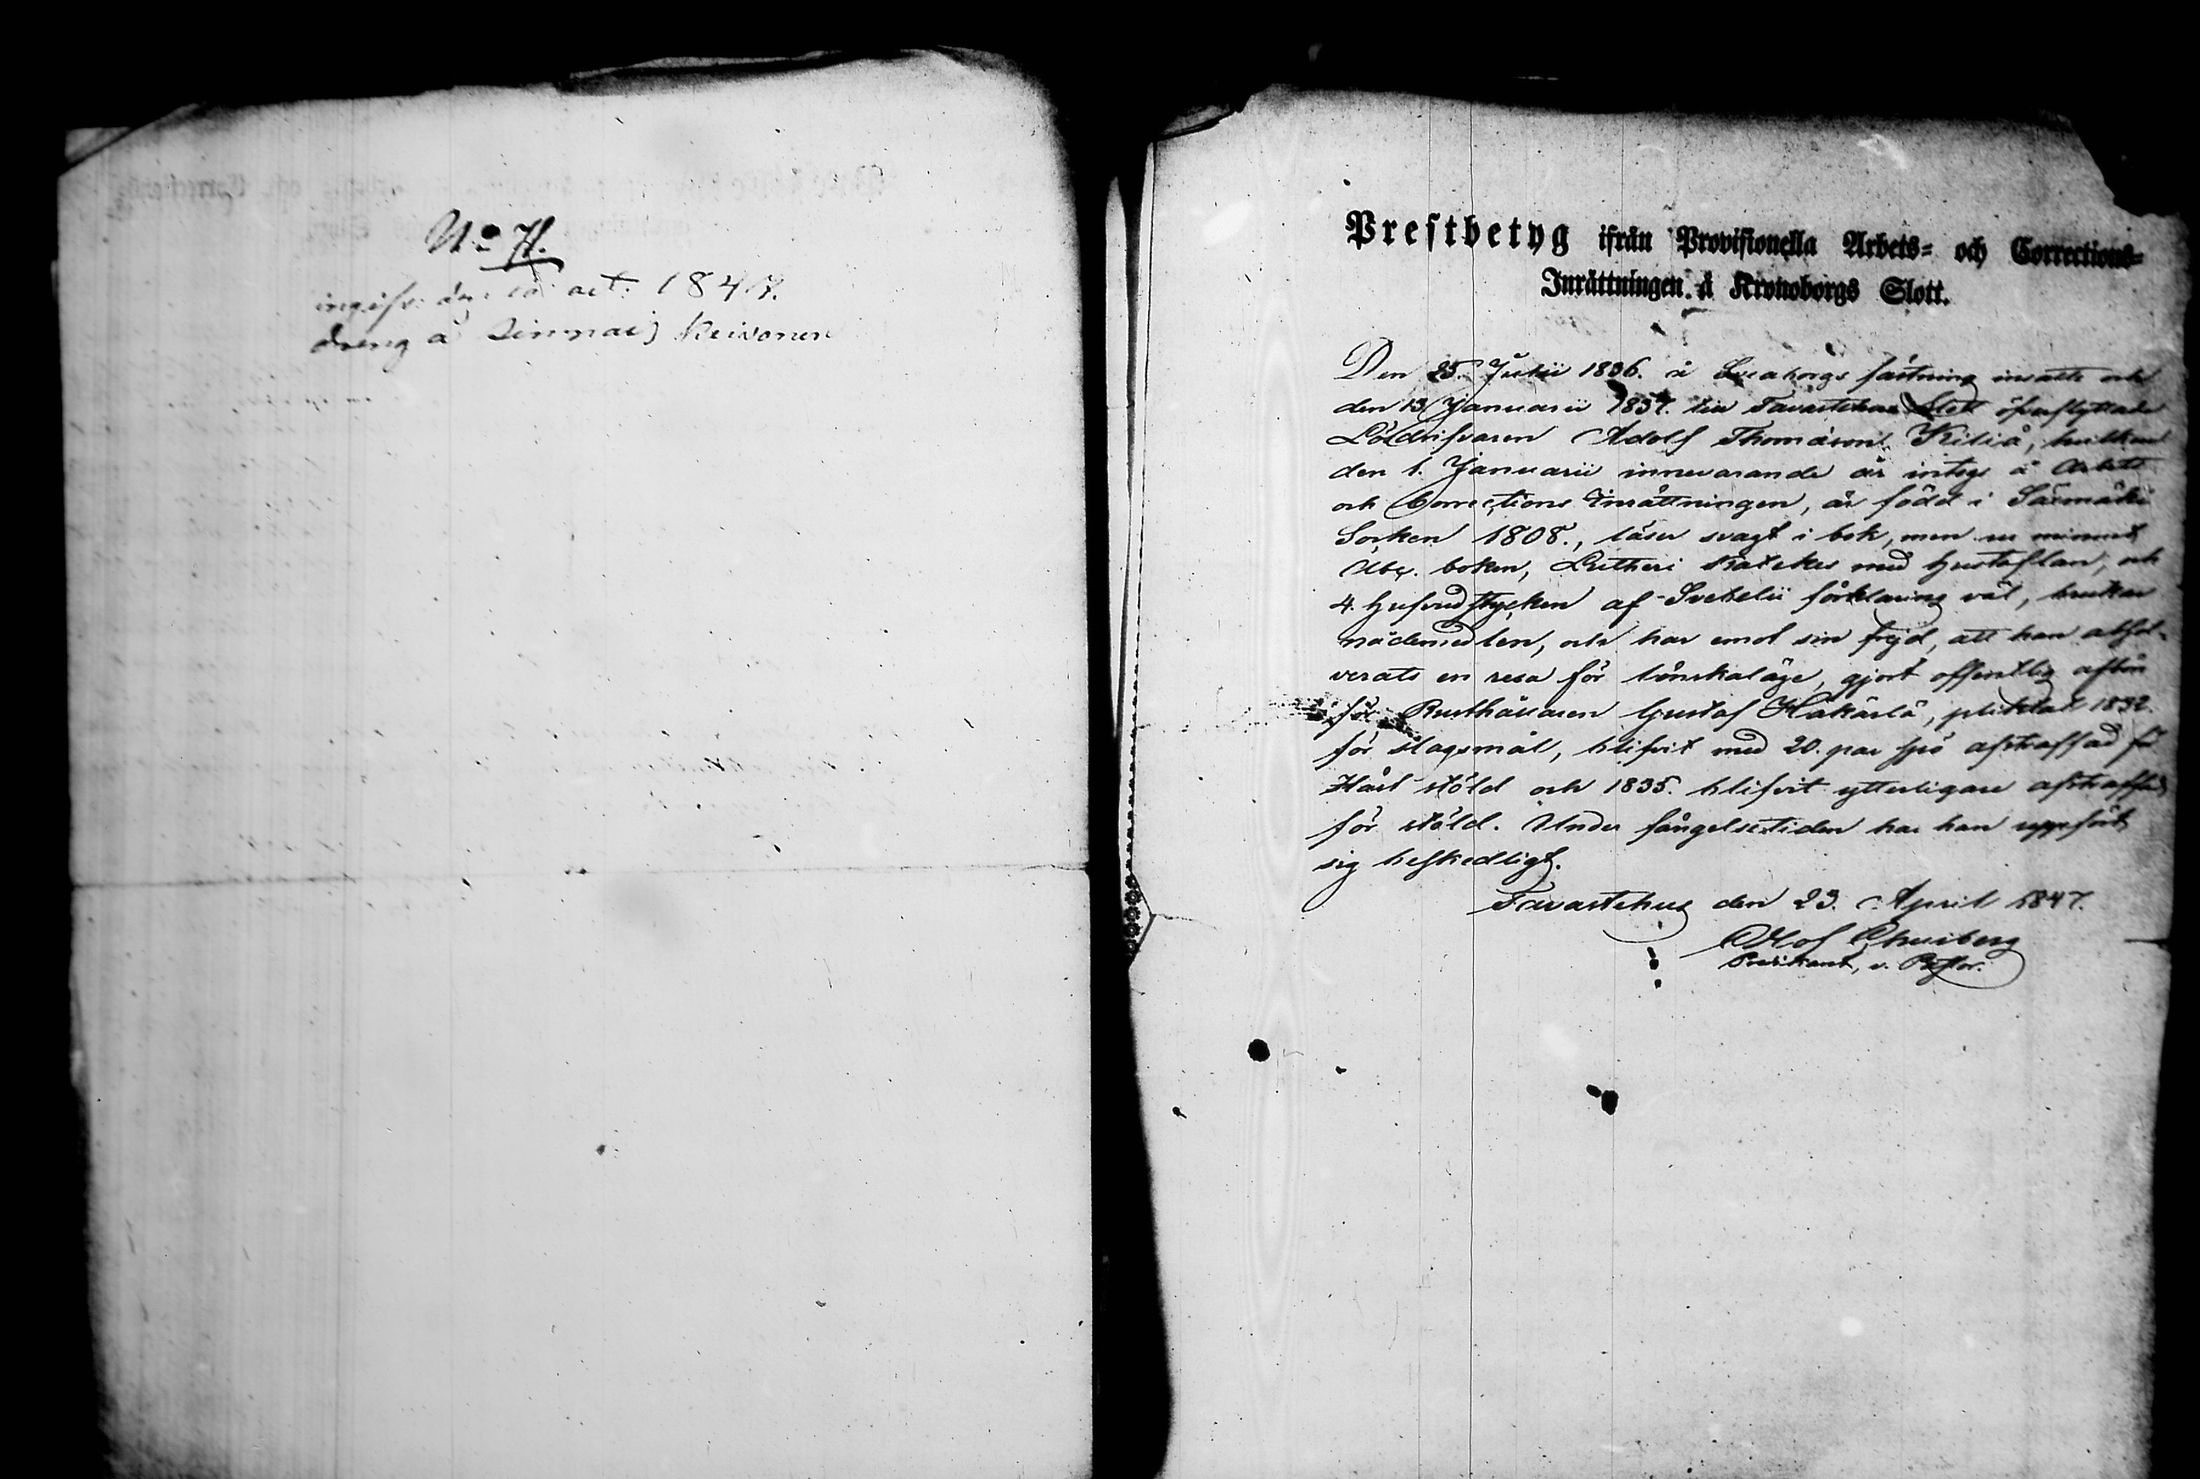 No 71.
ingifv. den 10 oct: 1847.
dreng å Keivonen
Prestbetyg ifrån Provisionella Arbets= och Corrections=
Inrättningen å Kronoborgs Slott.
Den 25. Julii 1836. å Sveaborgs fästning insatte och
den 13 Januarii 1837. till Tavastehus Slott öfverflyttade
Lösdrifvaren Adolf Thomasson Kiliä, hvilken
den 1. Januarii innevarande år intogs å Arbets
och Corrections Inrättningen, är född i Säxmäki
Socken 1808., läser svagt i bok, men ur minnet
Abc. boken, Lutheri Kateches med hustaflan, och
4. hufvudstycken af Svebelii förklaring väl, brukar
nådemedlen, och har emot sin frejd, att han absol-
verats en resa för lönskaläge, gjort offentlig afbön
för Rusthållaren Gustaf Hakärlä, pliktat 1832.
för slagsmål, blifvit med 20. par spö afstraffad för
stöld och 1835. blifvit ytterligare afstraffad
för stöld. Under fängelsetiden har han uppfört
sig beskedligt.
Tavastehus den 23. April 1847.
Olof
Predikant, v. Pastor.